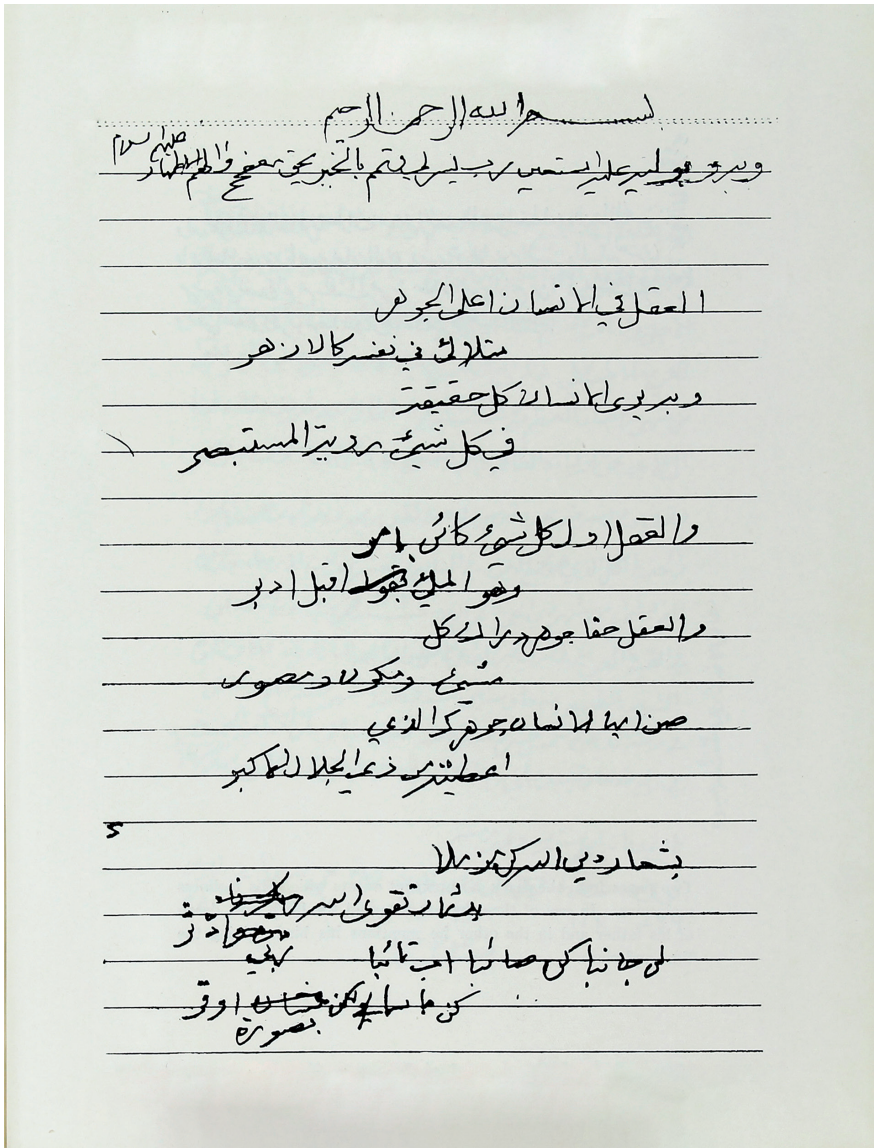 بسم الله الرحمن الرحيم
وبه وبوليه عليه استعين رب يسر لي وتمم بالخير بحق محمد وآله الاطهار
عليهم السلام
العقل في الانسان اعلى الجوهر
متلالئ في نفسه كالازهر
وبه يرى الانسان كل حقيقة
في كل شيئ روية المستبصر
والعقل اول كل شيئ كائن بامر
وهو المليئ اقبل ادبر
والعقل حقا جوهر دراك كل
شيئ ومكون ومصور
صن ايها الانسان جوهرك الذي
اعطيته من ذي الجلال الاكبر
بشعار دين الله كن متزملا
بدثار تقوى الله
ادثر
كن جانبا كن صائبا تائبا
ربي
كن ولكن اوقر
بصورة